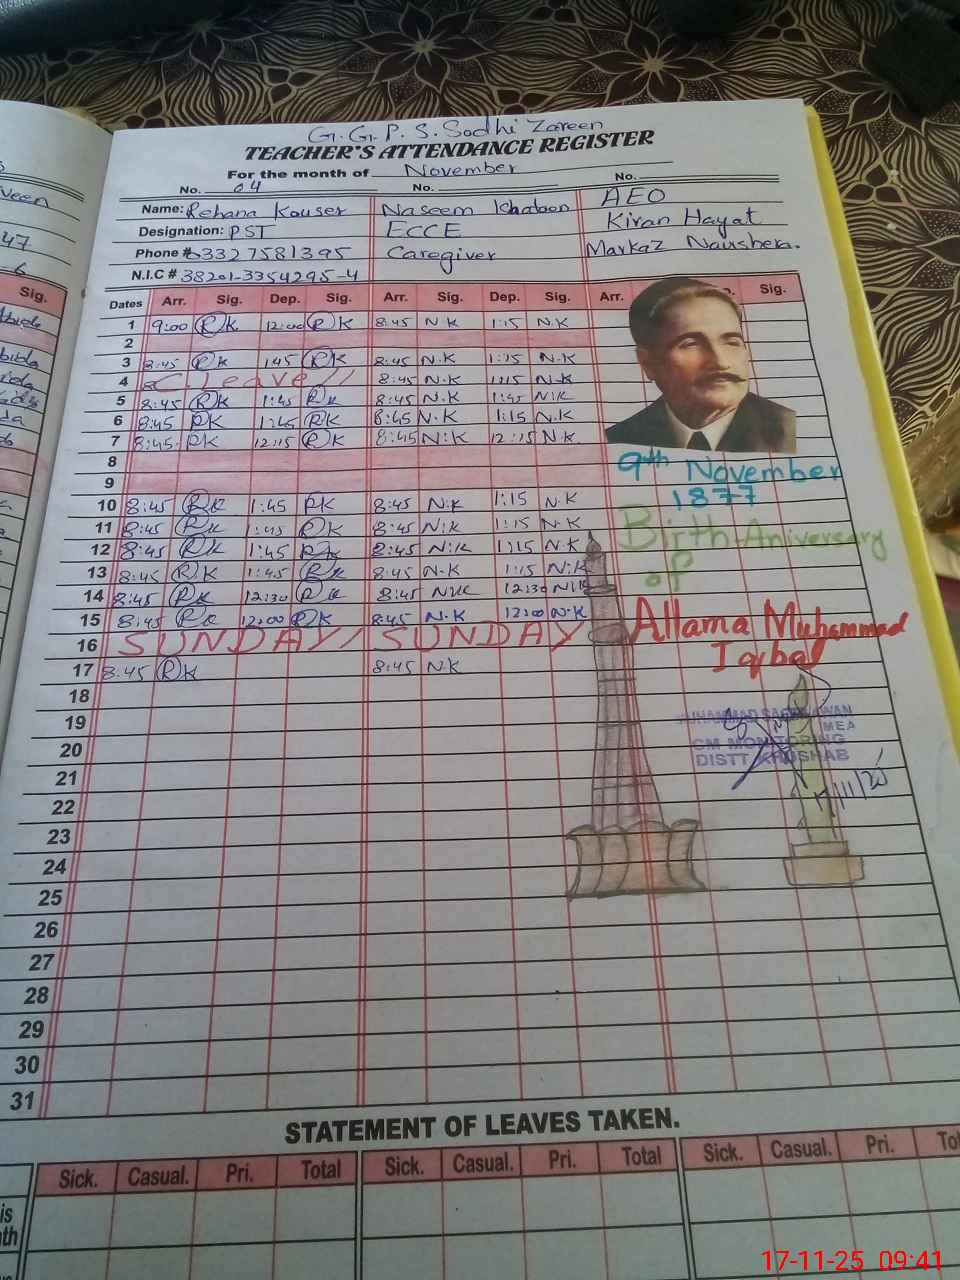 G.G.P.S. Sodhi Zareen
TEACHER'S ATTENDANCE REGISTER
For the month of November
No. 04 No. No.
Name: Rehana Kouser Naseem Khatoon AEO
Designation: PST ECCE Kiran Hayat
Phone # 3327581395 Caregiver Markaz Naushera.
N.I.C # 38201-3354295-4
Dates Arr. Sig. Dep. Sig. Arr. Sig. Dep. Sig. Arr. Sig.
1 9:00 RK 12:00 RK 8:45 N.K 1:15 N.K
2
3 8:45 RK 1:45 RK 8:45 N.K 1:15 N.K
4 C. leave // 8:45 N.K 1:15 N.K
5 8:45 RK 1:45 RK 8:45 N.K 1:45 N.K
6 8:45 RK 1:45 RK 8:45 N.K 1:15 N.K
7 8:45 RK 12:15 RK 8:45 N.K 12:15 N.K
8
9
10 8:45 RK 1:45 RK 8:45 N.K 1:15 N.K
11 8:45 RK 1:45 RK 8:45 N.K 1:15 N.K
12 8:45 RK 1:45 RK 8:45 N.K 1:15 N.K
13 8:45 RK 1:45 RK 8:45 N.K 1:15 N.K
14 8:45 RK 12:30 RK 8:45 N.K 12:30 N.K
15 8:45 RK 12:00 RK 8:45 N.K 12:00 N.K
16 SUNDAY / SUNDAY
17 8:45 RK 8:45 N.K
18
19
20
21
22
23
24
25
26
27
28
29
30
31
9th November
1877
Birth Aniversary
of
Allama Muhammad
Iqbal
MUHAMMAD AWAN
MEA
CM MONITORING
DISTT KHUSHAB
STATEMENT OF LEAVES TAKEN.
Sick. Casual. Pri. Total Sick. Casual. Pri. Total Sick. Casual. Pri.
17-11-25 09:41